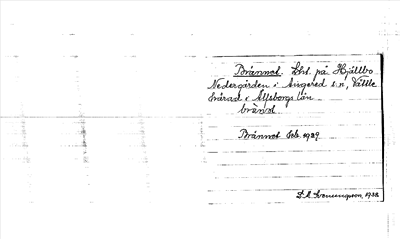 Brännet. Lht. på Hjällbo
Nedergården i Angered s:n, Vättle
härad i Älfsborgs län.
bränd
Brännet Seb. 1939.
D. A. Svenungsson, 1938.